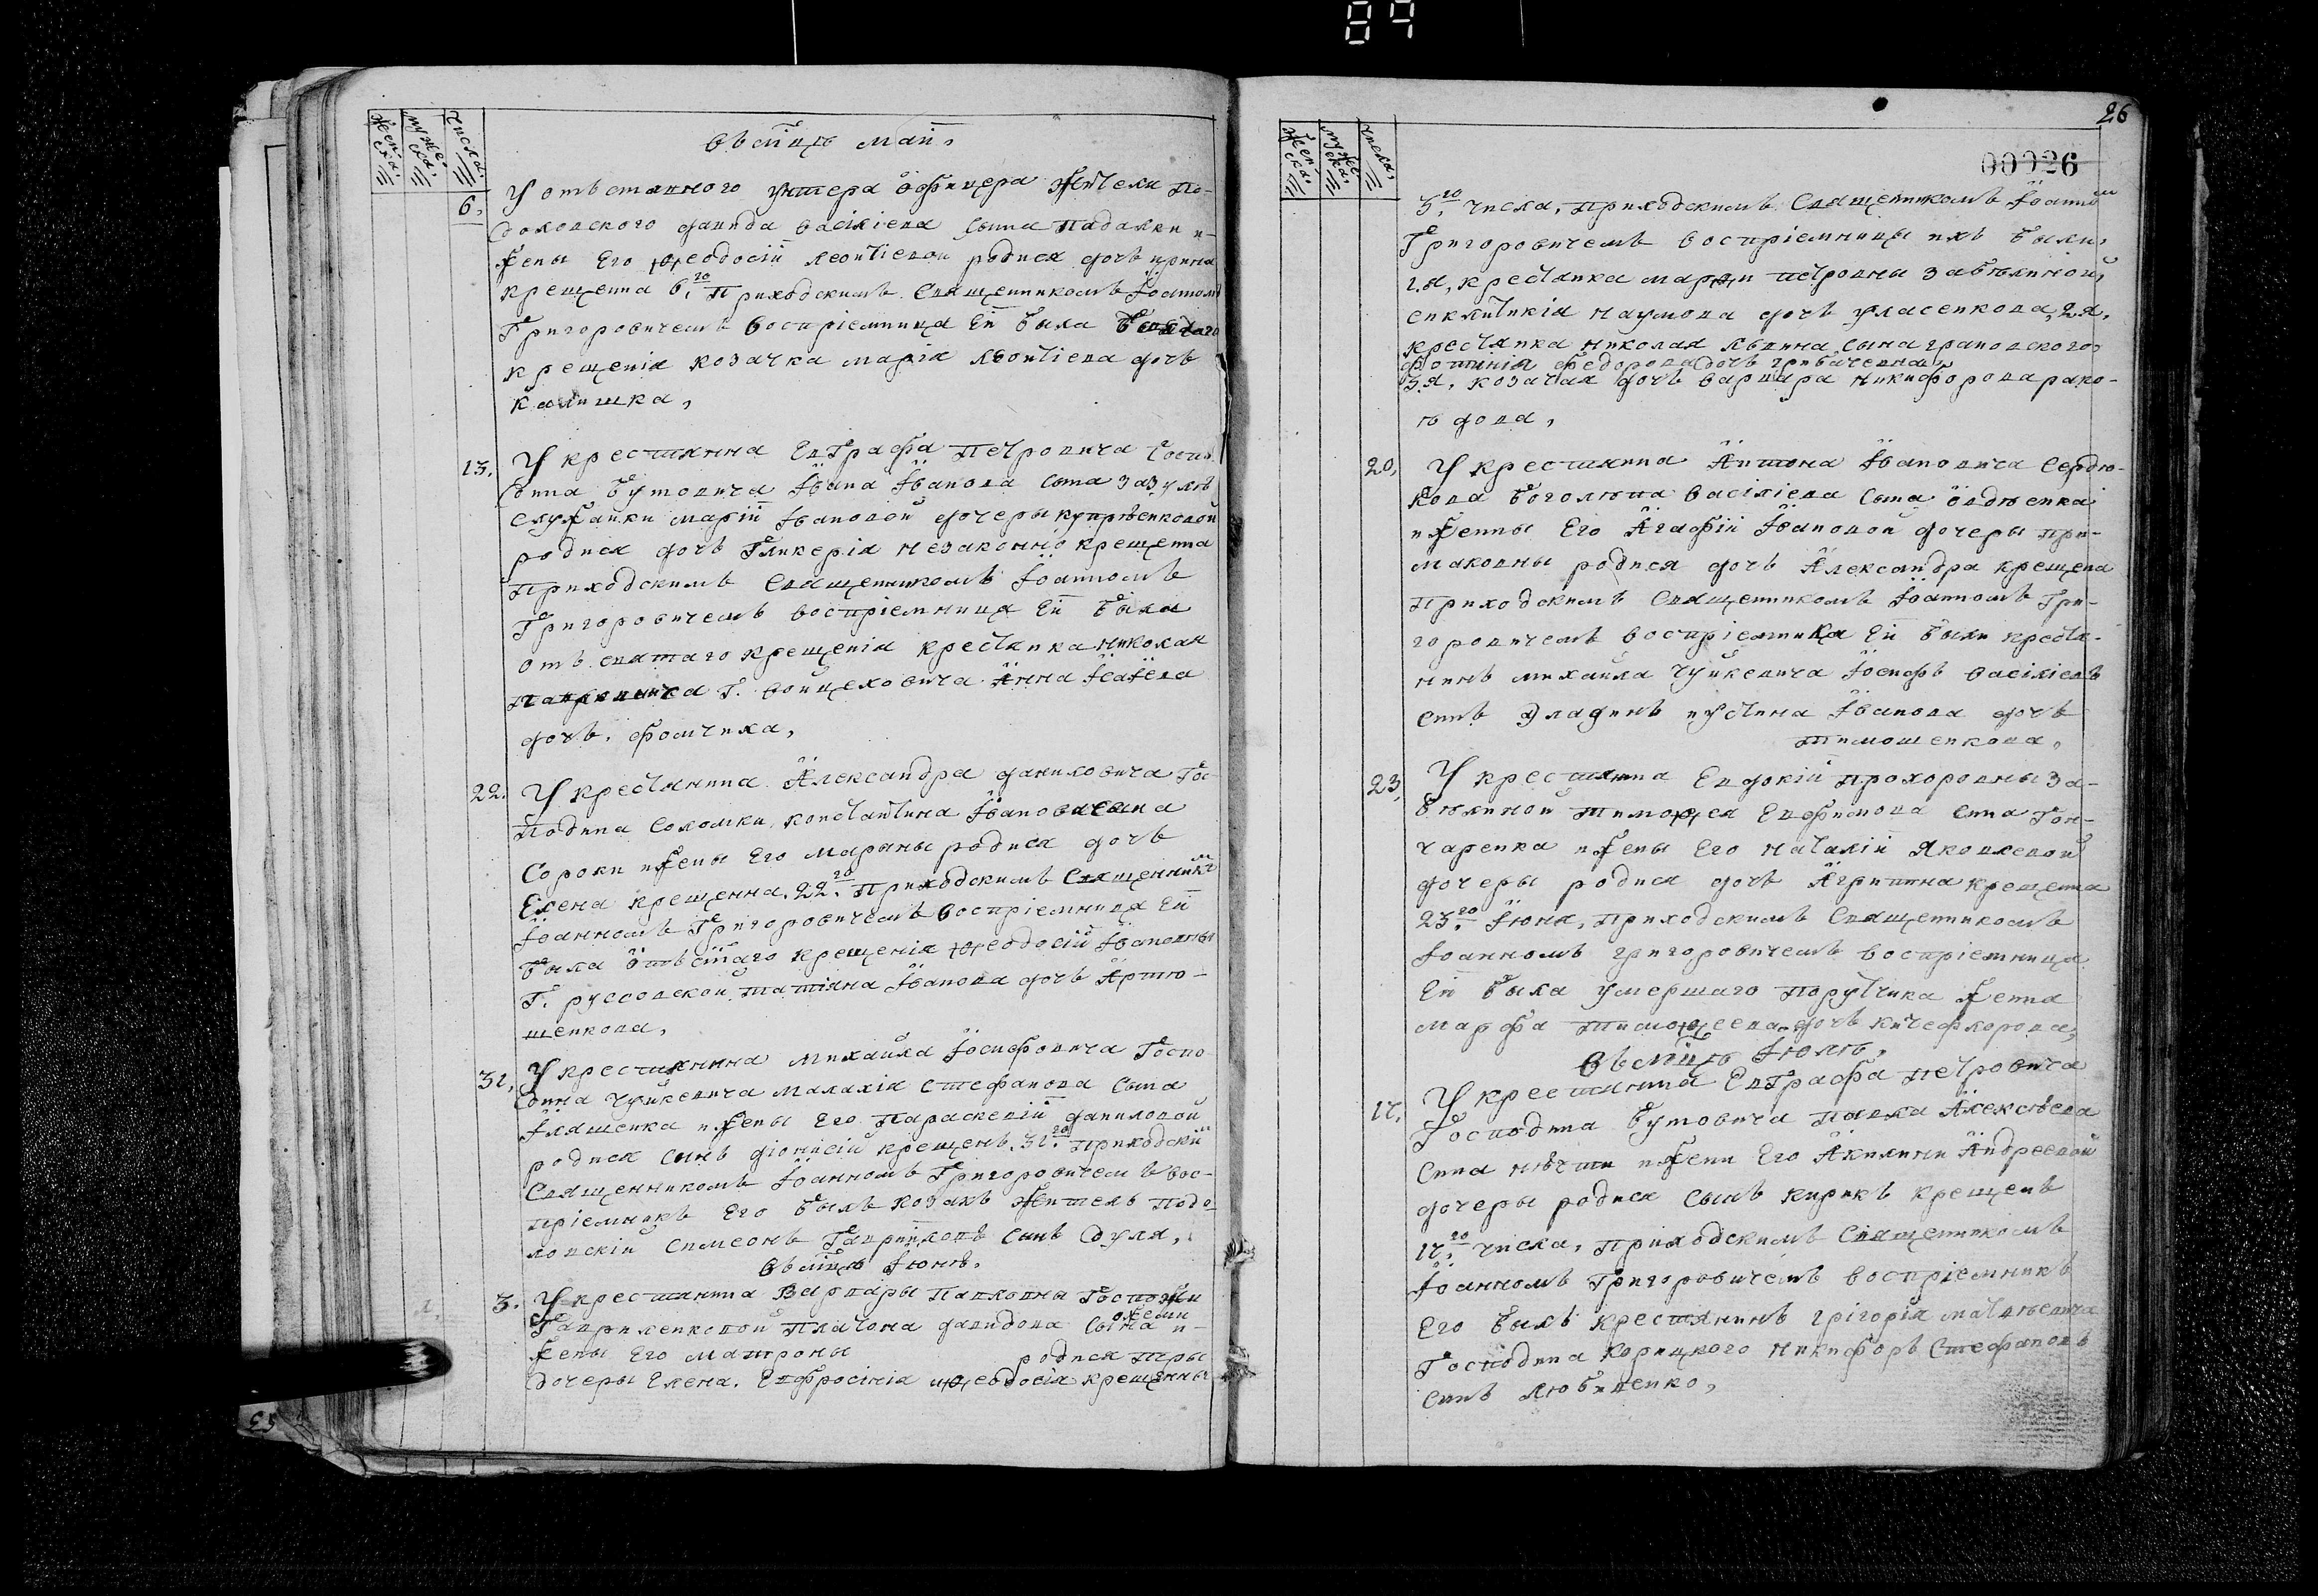 числа.
муже ска,
жен ска,
въ мцѣ маіи,
6, У отъставного унтера Офицера жителя По-
доловского давида василіева сына Падалки и-
жены Его Ѳеодосіи леонтіевой родися дочь ирина
крещенна 6, го Приходскимъ Священникомъ Іоанномъ
Григоровичемъ воспріемница Ей была
крещенія козачка марія леонтіева дочь
Калишка,
13, У крестянина Евграфа Петровича Госпо
дина Бутовича Івана Іванова сына зазулѣ
служанки маріи Івановой дочеры купрѣенковой
родися дочь Гликерія незаконно крещенна
Приходскимъ Священникомъ Іоанномъ
Григоровичемъ воспріемница Ей была
отъ святаго крещенія крестянка николая
Г. войцеховича Анна
дочь. фомчиха,
22. У крестянина Александра даниловича Гос-
подина Соломки константина Іванова сына
Сороки и жены Его марыны родися дочь
Елена крещенна. 22. го Приходскимъ Священником
Іоанномъ Григоровичемъ воспріемница Ей
была Отъ стаго крещенія Ѳеодосіи Івановны
Г. руссовской татіяна Іванова дочь Артю-
шенкова,
31, У крестянина Михайла Іосифовича Госпо
дина Чуйкевича малахія стефанова сына
Іляшенка и жены Его Параскевіи даниловой
родися сынъ діонисій крещенъ. 31. го Приходским
Священникомъ Іоанномъ Григоровичемъ вос-
пріемникъ Его былъ козакъ житель Подо-
ловскій Симеонъ Гавріиловъ сынъ Дуля,
въ мцѣ Іюнѣ.
3. У крестянина Варвары Павловны Госпожи
Гавриленковой Платона давидова сына и-
жены Его матроны родися тры
дочеры Елена. Евфросінія и Ѳеодосія крещенны
26
00026
числа,
муже ска,
жен ска,
3, го числа, Приходскимъ Священникомъ Іоанном
Григоровичемъ воспріемницы ихъ были,
1.я, крестянка марѳи петровны забѣлиной,
сикклитикія наумова дочь уласенкова, 2.я,
крестянка николая львина сына грановского
фотинія федорова дочь грибачевна,
3.я, козачая дочь варвара никифорова рако-
ѣдова,
20, У крестянина Антона Івановича Сердю-
кова боголѣпа василіева сына Овдѣенка
и женны Его Агафіи Івановой дочеры при-
маковны родися дочь Александра крещена
Приходскимъ Священникомъ Іоанномъ Гри-
горовичемъ воспріемника Ей были крестя-
нинъ михаила Чуйкевича Іосифъ василіевъ
синъ и устина Іванова дочь
тимошенкова,
23, У крестянина Евдокіи прохоровны за-
бѣлиной тимоѳея Евфимова сина Гон-
чаренка и жены Его наталіи яковлевой
дочеры родися дочь Агрипина крещенна
23. го Іюня, Приходскимъ Священникомъ
Іоанномъ григоровичемъ воспріемница
Ей была умершаго порутчика женна
марфа тимоѳеева дочь
въ мцѣ Іюлѣ,
17, У крестянина Евграфа петровича
Господина Бутовича Павла Алексѣева
сина и жени Его Акилини Андреевой
дочеры родися сынъ кирикъ крещенъ
17. го числа, приходскимъ Священникомъ
Іоанномъ Григоровичемъ воспріемникъ
Его былъ крестянинъ грігорія матвѣевича
Господина Корицкого Никифоръ Стефановъ
синъ любченко,